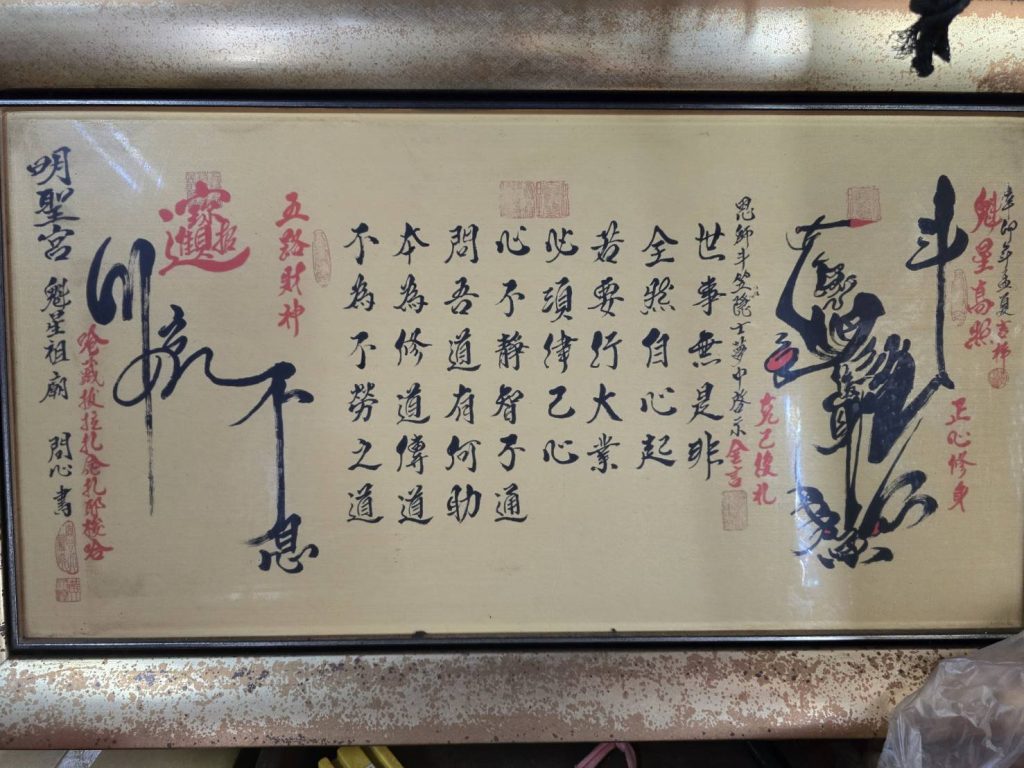 卯年孟夏吉
魁星高照
斗
正心修身
克己復礼
恩師斗笠隱士夢中啓示金言
世事無是非
全然自心起
若要行大業
必須律己心
心不靜智不通
問吾道有何助
本為修道傳道
不為不勞之道
五路財神
招財進寶
川流不息
明聖宮 魁星祖廟 問心書